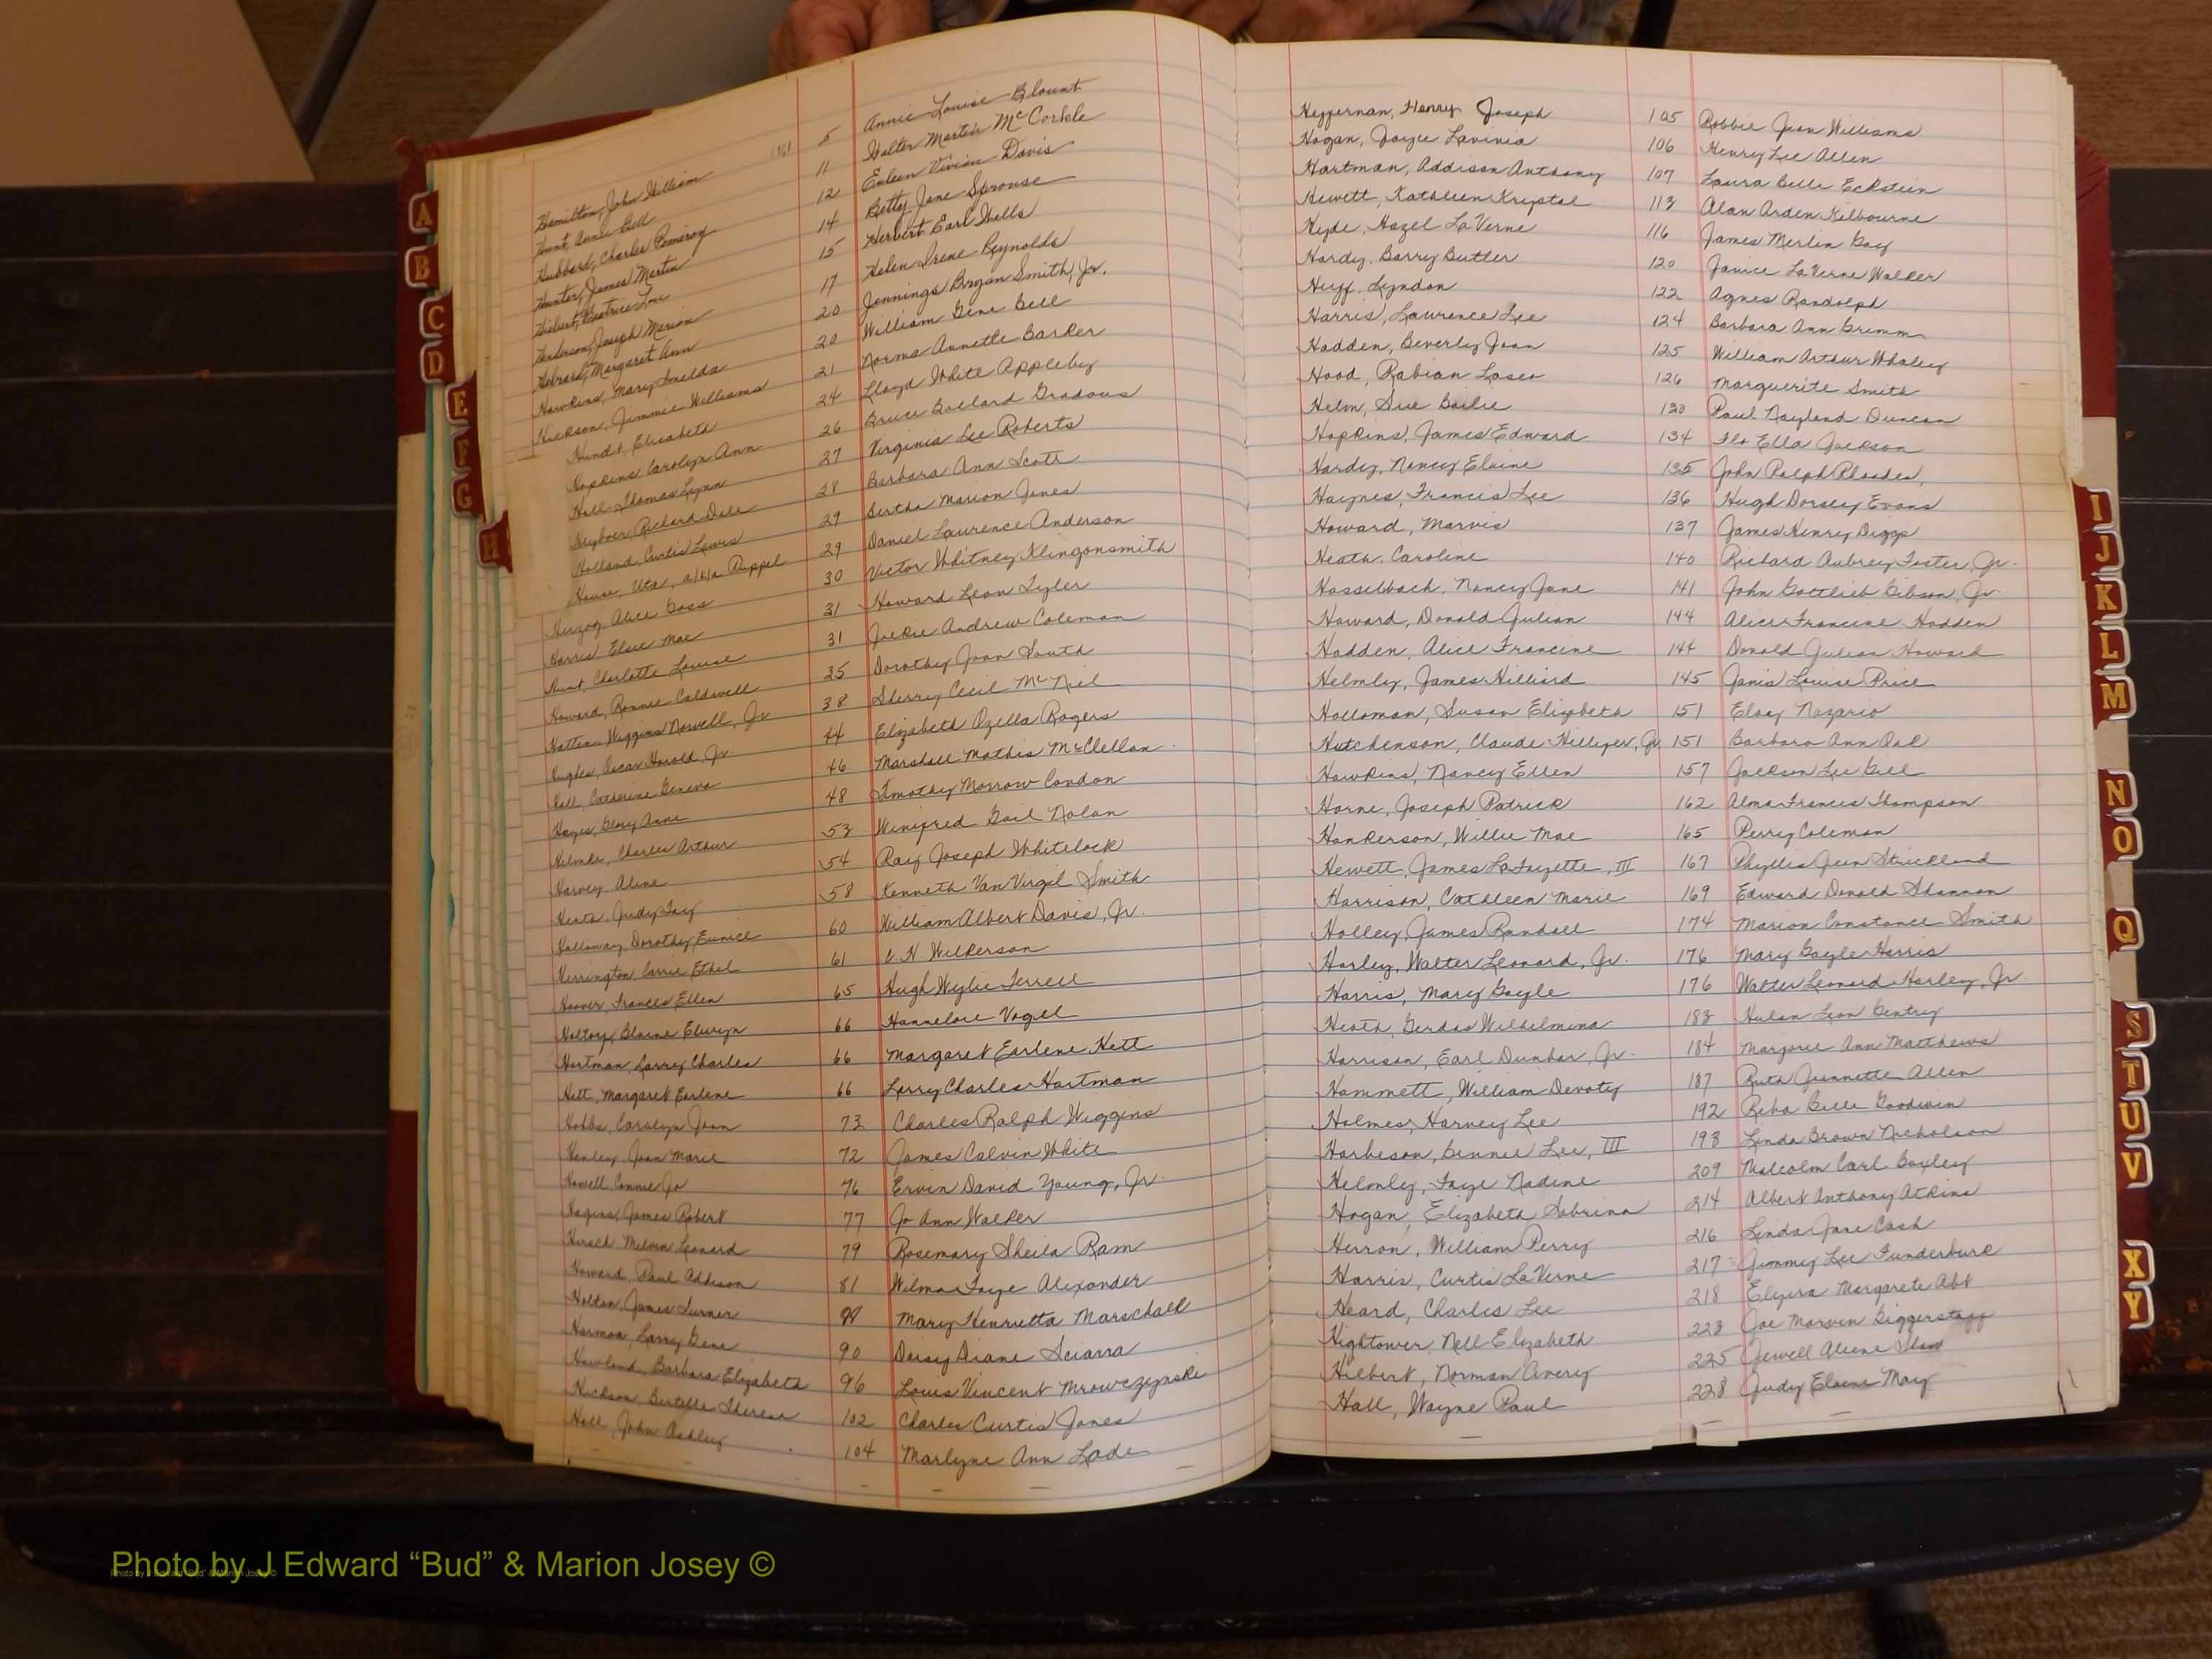 1961
Hamilton, John William 5 Annie Louise Blount
Hunt, Annie Bell 11 Walter Martin McCorkle
Hubbard, Charles Pomeroy 12 Eileen Vivian Davis
Hunter, James Martin 14 Betty Jane Sprouse
Hiebert, Beatrice Lou 15 Herbert Earl Wells
Henderson, Joseph Marion 17 Helen Irene Reynolds
Margaret Ann 20 Jennings Bryan Smith, Jr.
Hawkins, Mary Imelda 20 William Gene Bell
Hickson, Jimmie Williams 21 Norma Annette Barker
Hundt, Elisabeth 24 Lloyd White Appleby
Hopkins, Carolyn Ann 26 Bruce Ballard Gradous
Hall, Thomas Lynn 27 Virginia Lee Roberts
Heyboer, Richard Dale 28 Barbara Ann Scott
Holland, Curtis Lewis 29 Bertha Marion Jones
House, Uta, a/k/a Ruppel 29 Daniel Laurence Anderson
Herzog, Alice Goss 30 Victor Whitney Klingonsmith
Harris, Elsie Mae 31 Howard Leon Tyler
Hunt, Charlotte Louise 31 Jackie Andrew Coleman
Howard, Ronnie Caldwell 35 Dorothy Joan South
Hatten, Wiggins Nowell, Jr 38 Sherry Cecil McNiel
Hughes, Oscar Harold, Jr. 44 Elizabeth Ozella Rogers
Hall, Catherine Geneva 46 Marshall Mathis McClellan
Hayes, Glory Anne 48 Timothy Morrow Condon
Helmke, Charles Arthur 53 Winifred Gail Nolan
Harvey, Aline 54 Ray Joseph Whitelock
Heath, Judy Fay 58 Kenneth Van Virgil Smith
Holloway, Dorothy Eunice 60 William Albert Davis, Jr.
Herrington, Carrie Ethel 61 C.N. Wilkerson
Hoover, Frances Ellen 65 Hugh Wylie Terrell
Holtory, Blaine Elwyn 66 Hannelore Vogel
Hartman, Larry Charles 66 Margaret Earlene Hett
Hett, Margaret Earlene 66 Larry Charles Hartman
Hobbs, Carolyn Joan 73 Charles Ralph Wiggins
Henley, Joan Marie 72 James Calvin White
Howell, Connie Jo 76 Ervin David Young, Jr.
Hagins, James Robert 77 Jo Ann Walker
Hirsch, Melvin Leonard 79 Rosemary Sheila Ram
Howard, Paul Addison 81 Wilma Faye Alexander
Holton, James Turner Mary Henrietta Marschall
Harmon, Larry Gene 90 Daisy Diane Sciarra
Howland, Barbara Elizabeth 96 Louis Vincent Mrowczynski
Hickson, Bertelle Therese 102 Charles Curtis Jones
Hall, John Ashley 104 Marlyne Ann Lade
Heffernan, Henry Joseph 105 Robbie Jean Williams
Hogan, Joyce Lavinia 106 Henry Lee Allen
Hartman, Addison Anthony 107 Laura Belle Eckstein
Hewett, Kathleen Krystal 113 Alan Arden Kilbourne
Hyde, Hazel LaVerne 116 James Merlin Gay
Hardy, Barry Butler 120 Janice LaVerne Walker
Huff, Lyndon 122 Agnes Randolph
Harris, Laurence Lee 124 Barbara Ann Grimm
Hadden, Beverly Joan 125 William Arthur Whaley
Hood, Rabian Laser 126 Marguerite Smith
Helm, Sue Bailie 130 Paul Nayland Duncan
Hopkins, James Edward 134 Flo Ella Jackson
Hardy, Nancy Elaine 135 John Ralph Rhoades,
Haynes, Francis Lee 136 Hugh Dorsey Evans
Howard, Marvis 137 James Henry Diggs
Heath, Caroline 140 Richard Aubrey Foster, Jr.
Hasselbach, Nancy June 141 John Gottlieb Gibson, Jr.
Howard, Donald Julian 144 Alice Francine Hadden
Hadden, Alice Francine 144 Donald Julian Howard
Helmly, James Hilliard 145 Janis Louise Price
Holloman, Susan Elizabeth 151 Eloy Nazario
Hutchenson, Claude Hillyer, Jr 151 Barbara Ann Oal
Hawkins, Nancy Ellen 157 Jackson Lee Gill
Horne, Joseph Patrick 162 Alma Frances Thompson
Hankerson, Willie Mae 165 Perry Coleman
Hewett, James LaFayette, III 167 Phyllis Jeen Strickland
Harrison, Cathleen Marie 169 Edward Donald Shannon
Holley, James Randall 174 Marion Constance Smith
Harley, Walter Leonard, Jr. 176 Mary Gayle Harris
Harris, Mary Gayle 176 Walter Leonard Harley, Jr.
Heath, Gerdas Wilhelmina 183 Hulan Leon Gentry
Harrison, Earl Dunbar, Jr. 184 Marjorie Ann Matthews
Hammett, William Devoty 187 Ruth Jeannette Allen
Holmes, Harvey Lee 192 Reba Belle Goodwin
Harbeson, Bennie Lee, III 193 Linda Brown Nicholson
Helmley, Faye Nadine 209 Malcolm Carl Baxley
Hogan, Elizabeth Sabrina 214 Albert Anthony Atkins
Herron, William Perry 216 Linda Jane Cash
Harris, Curtis LaVerne 217 Jimmy Lee Funderburk
Heard, Charles Lee 218 Elyira Margarete Abt
Hightower, Nell Elizabeth 223 Joe Marvin Biggerstaff
Hilbert, Norman Avery 225 Jewell Aliene Shaw
Hall, Wayne Paul 228 Judy Elaine May
A
B
C
D
E
F
G
H
I
J
K
L
M
N
O
Q
S
T
U
V
X
Y
Photo by J Edward “Bud” & Marion Josey ©
Photo by J Edward "Bud" & Marion Josey ©